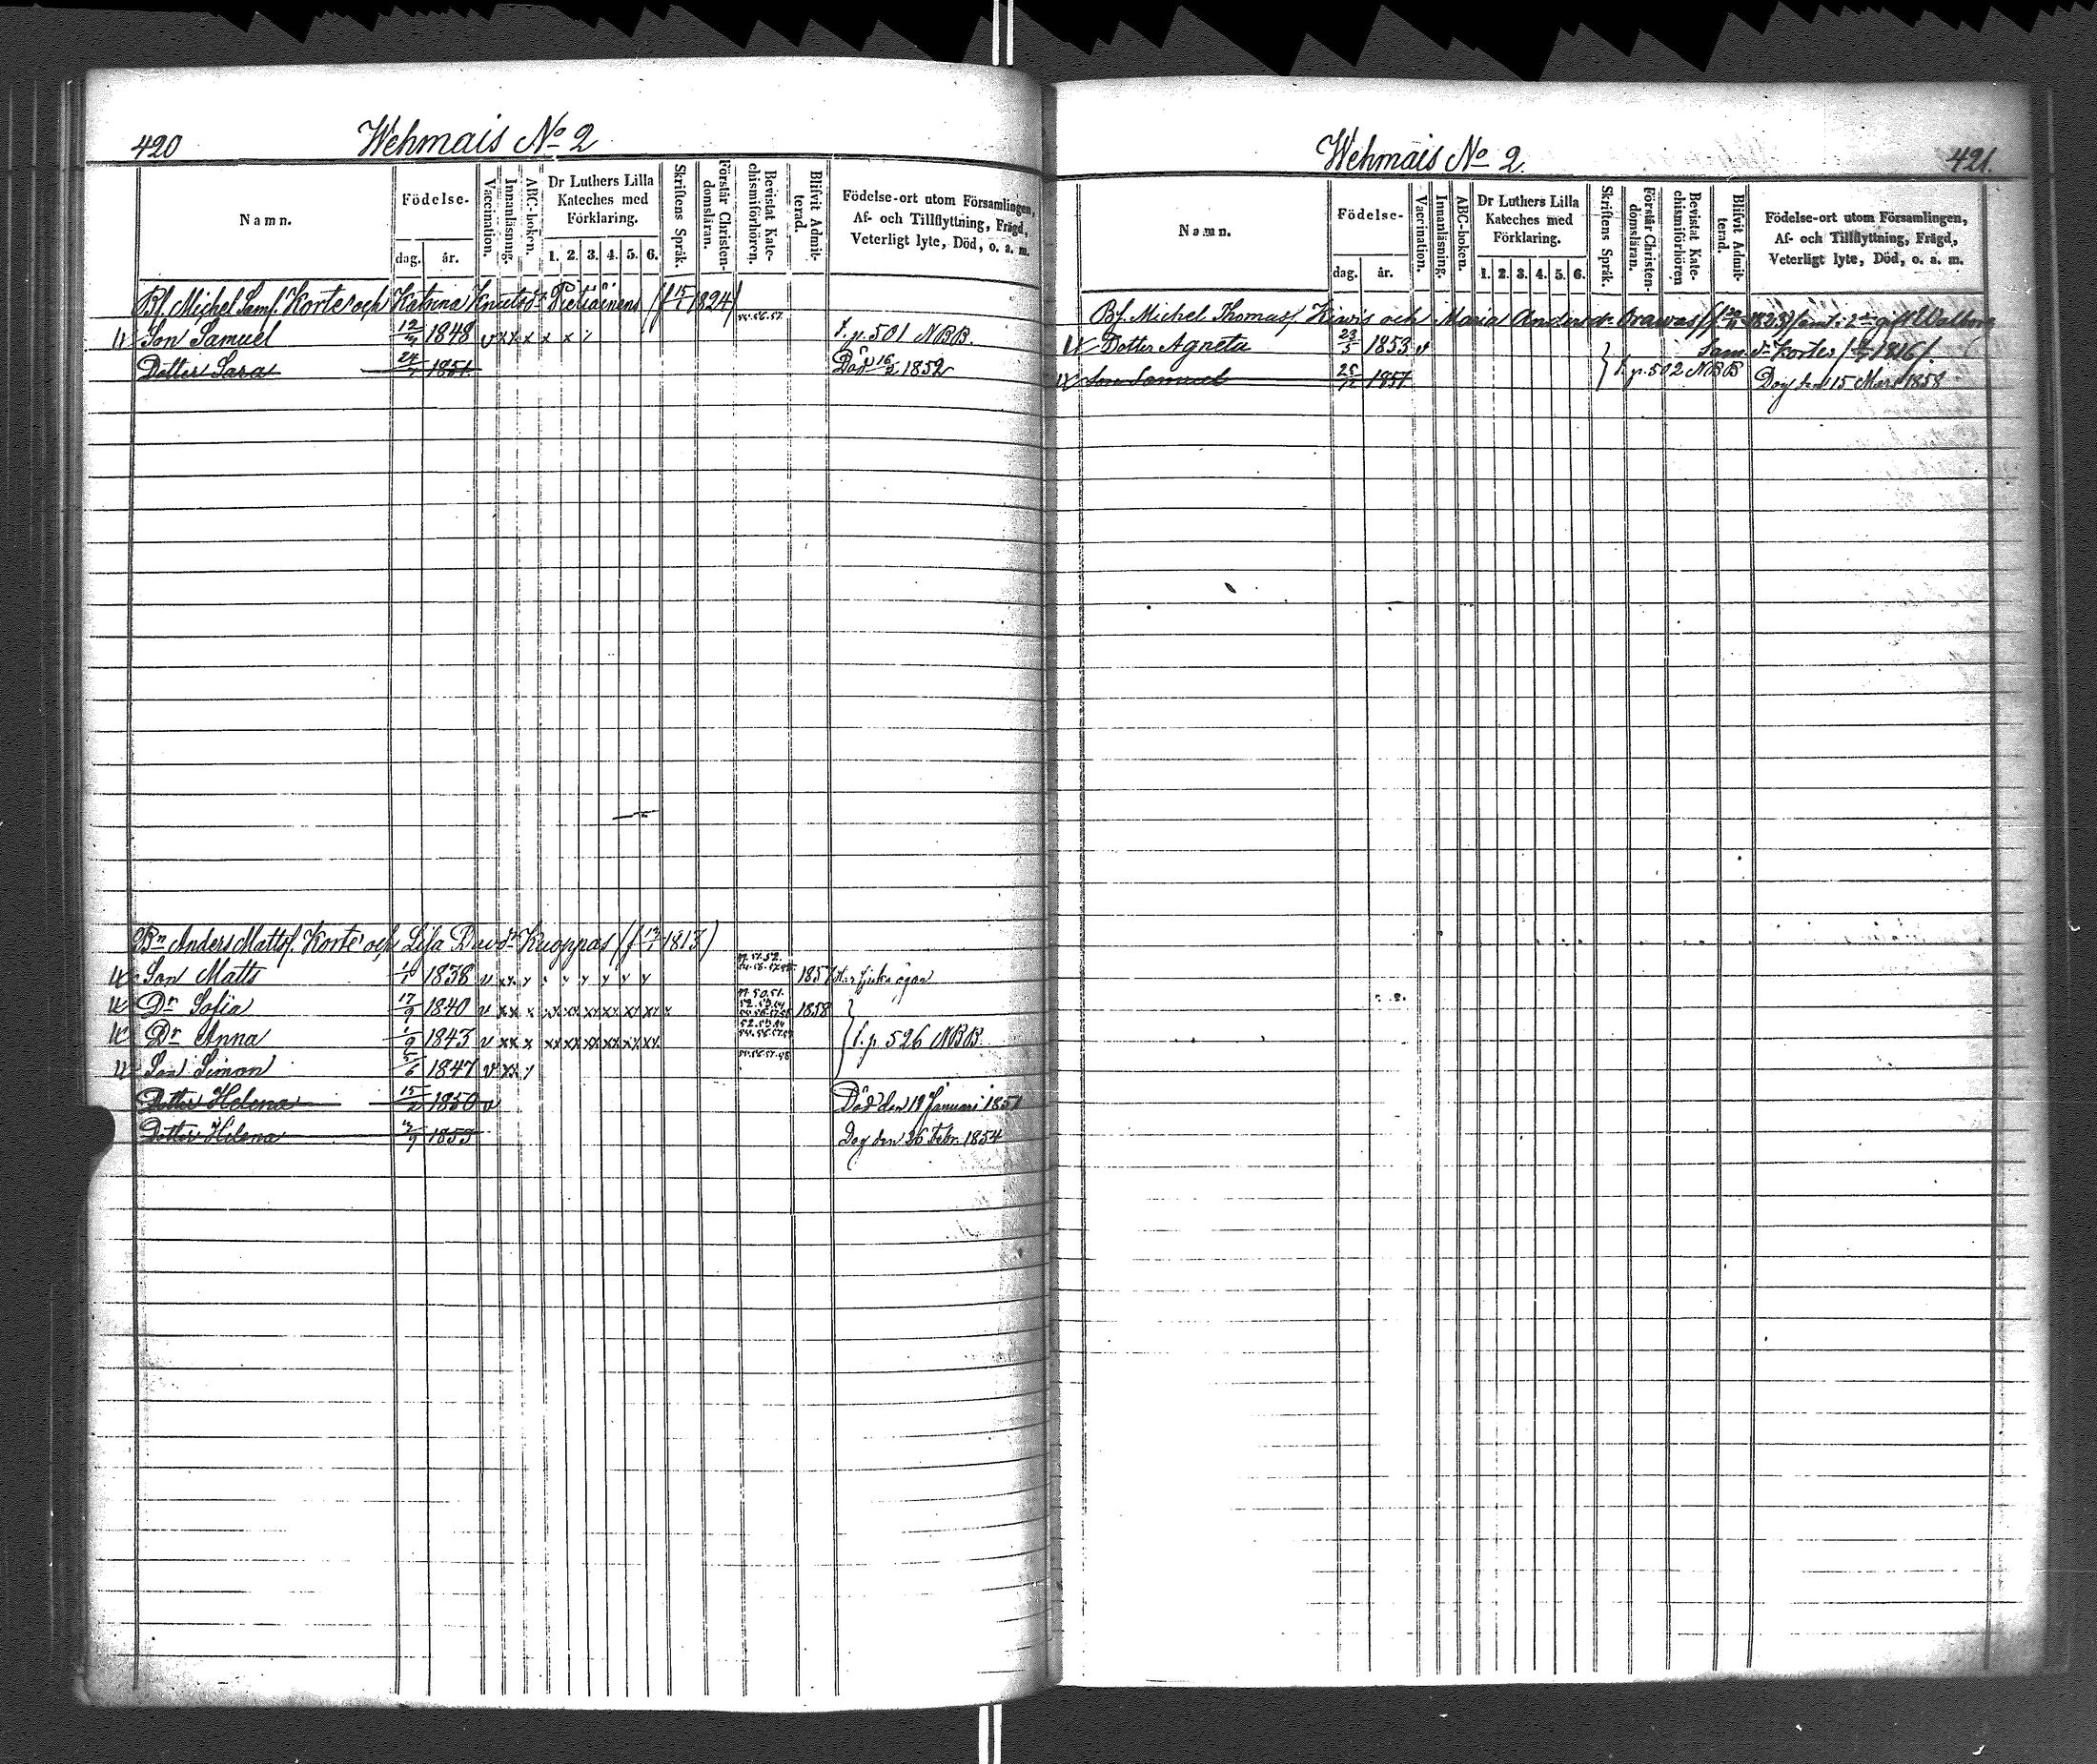 420 Wehmais No 2
Namn.
Födelse-
dag. år.
Vaccination.
Innanläsning.
ABC-boken.
Dr Luthers Lilla
Kateches med
Förklaring.
1. 2. 3. 4. 5. 6.
Skriftens Språk.
Förstår Christen-
domsläran.
Bevistat Kate-
chismiförhören.
Blifvit Admit-
terad.
Födelse-ort utom Församlingen,
Af- och Tillflyttning, Frägd,
Veterligt lyte, Död, o. a. m.
Bf. Michel Samf. Korte och Katrina Knutsdr Pietiäinens (f 15/1 1824)
Son Samuel 1848 v xx x x x f. p. 501 NBB.
Dotter Sara 1851 Död 1852
Bn Anders Mattsf. Korte och Lisa Davdr Kuoppas (f 1813)
Son Matts 1838 v 1857 Har sjuka ögon
Dr Sofia 17/9 1840 v xx x xx xx xx xx xx xx x 1858
Dr Anna 1/9 1843 v xx x xx xx xx xx xx xx f. p. 526 NBB.
Son Simon 5/6 1847 v xx
Dotter Helena 15/2 1850 v Död den 19 Januari 1851
Dotter Helena 1853 Dog den 26 Febr. 1854
Wehmais No 2. 421.
Namn.
Födelse-
dag. år.
Vaccination.
Innanläsning.
ABC-boken.
Dr Luthers Lilla
Kateches med
Förklaring.
1. 2. 3. 4. 5. 6.
Skriftens Språk.
Förstår Christen-
domsläran.
Bevistat Kate-
chismiförhören
Blifvit Admit-
terad.
Födelse-ort utom Församlingen,
Af- och Tillflyttning, Frägd,
Veterligt lyte, Död, o. a. m.
Bf. Michel Thomasf. Kiwis och Maria Andersdr Orawas gift Walborg
Sam. dr Kortes 1816).
Dotter Agneta 23/5 1853 v
Son Samuel 25/12 1857 f. p. 502 NBB Dog den 15 Mars 1858